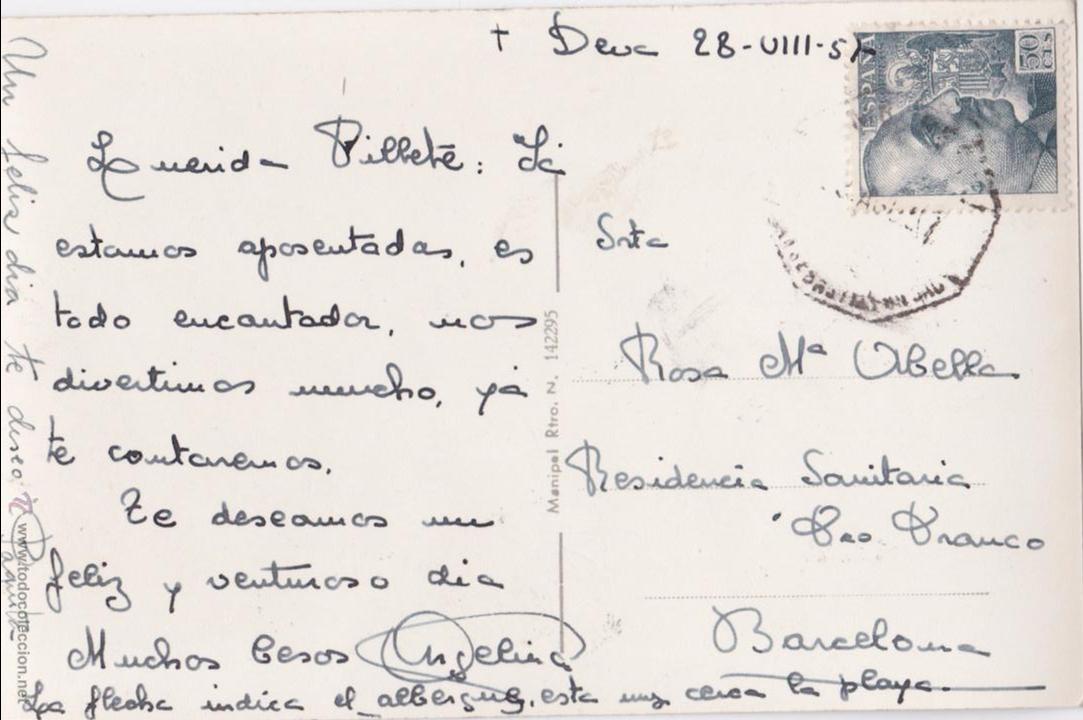 † Deva 28-VIII-57
Querida Pilleté: Ya
estamos aposentadas, es
todo encantador, nos
divertimos mucho, ya
te contaremos.
Te deseamos un
feliz y venturoso dia
Muchos besos Angelina
La flecha indica el albergue, esta muy cerca la playa.
Un feliz dia te deseo
Paquita
Manipel Rtro. N. 142295
ESPAÑA
50 CTS
Srta
Rosa Mª Abella
Residencia Sanitaria
Fco Franco
Barcelona
www.todocoleccion.net